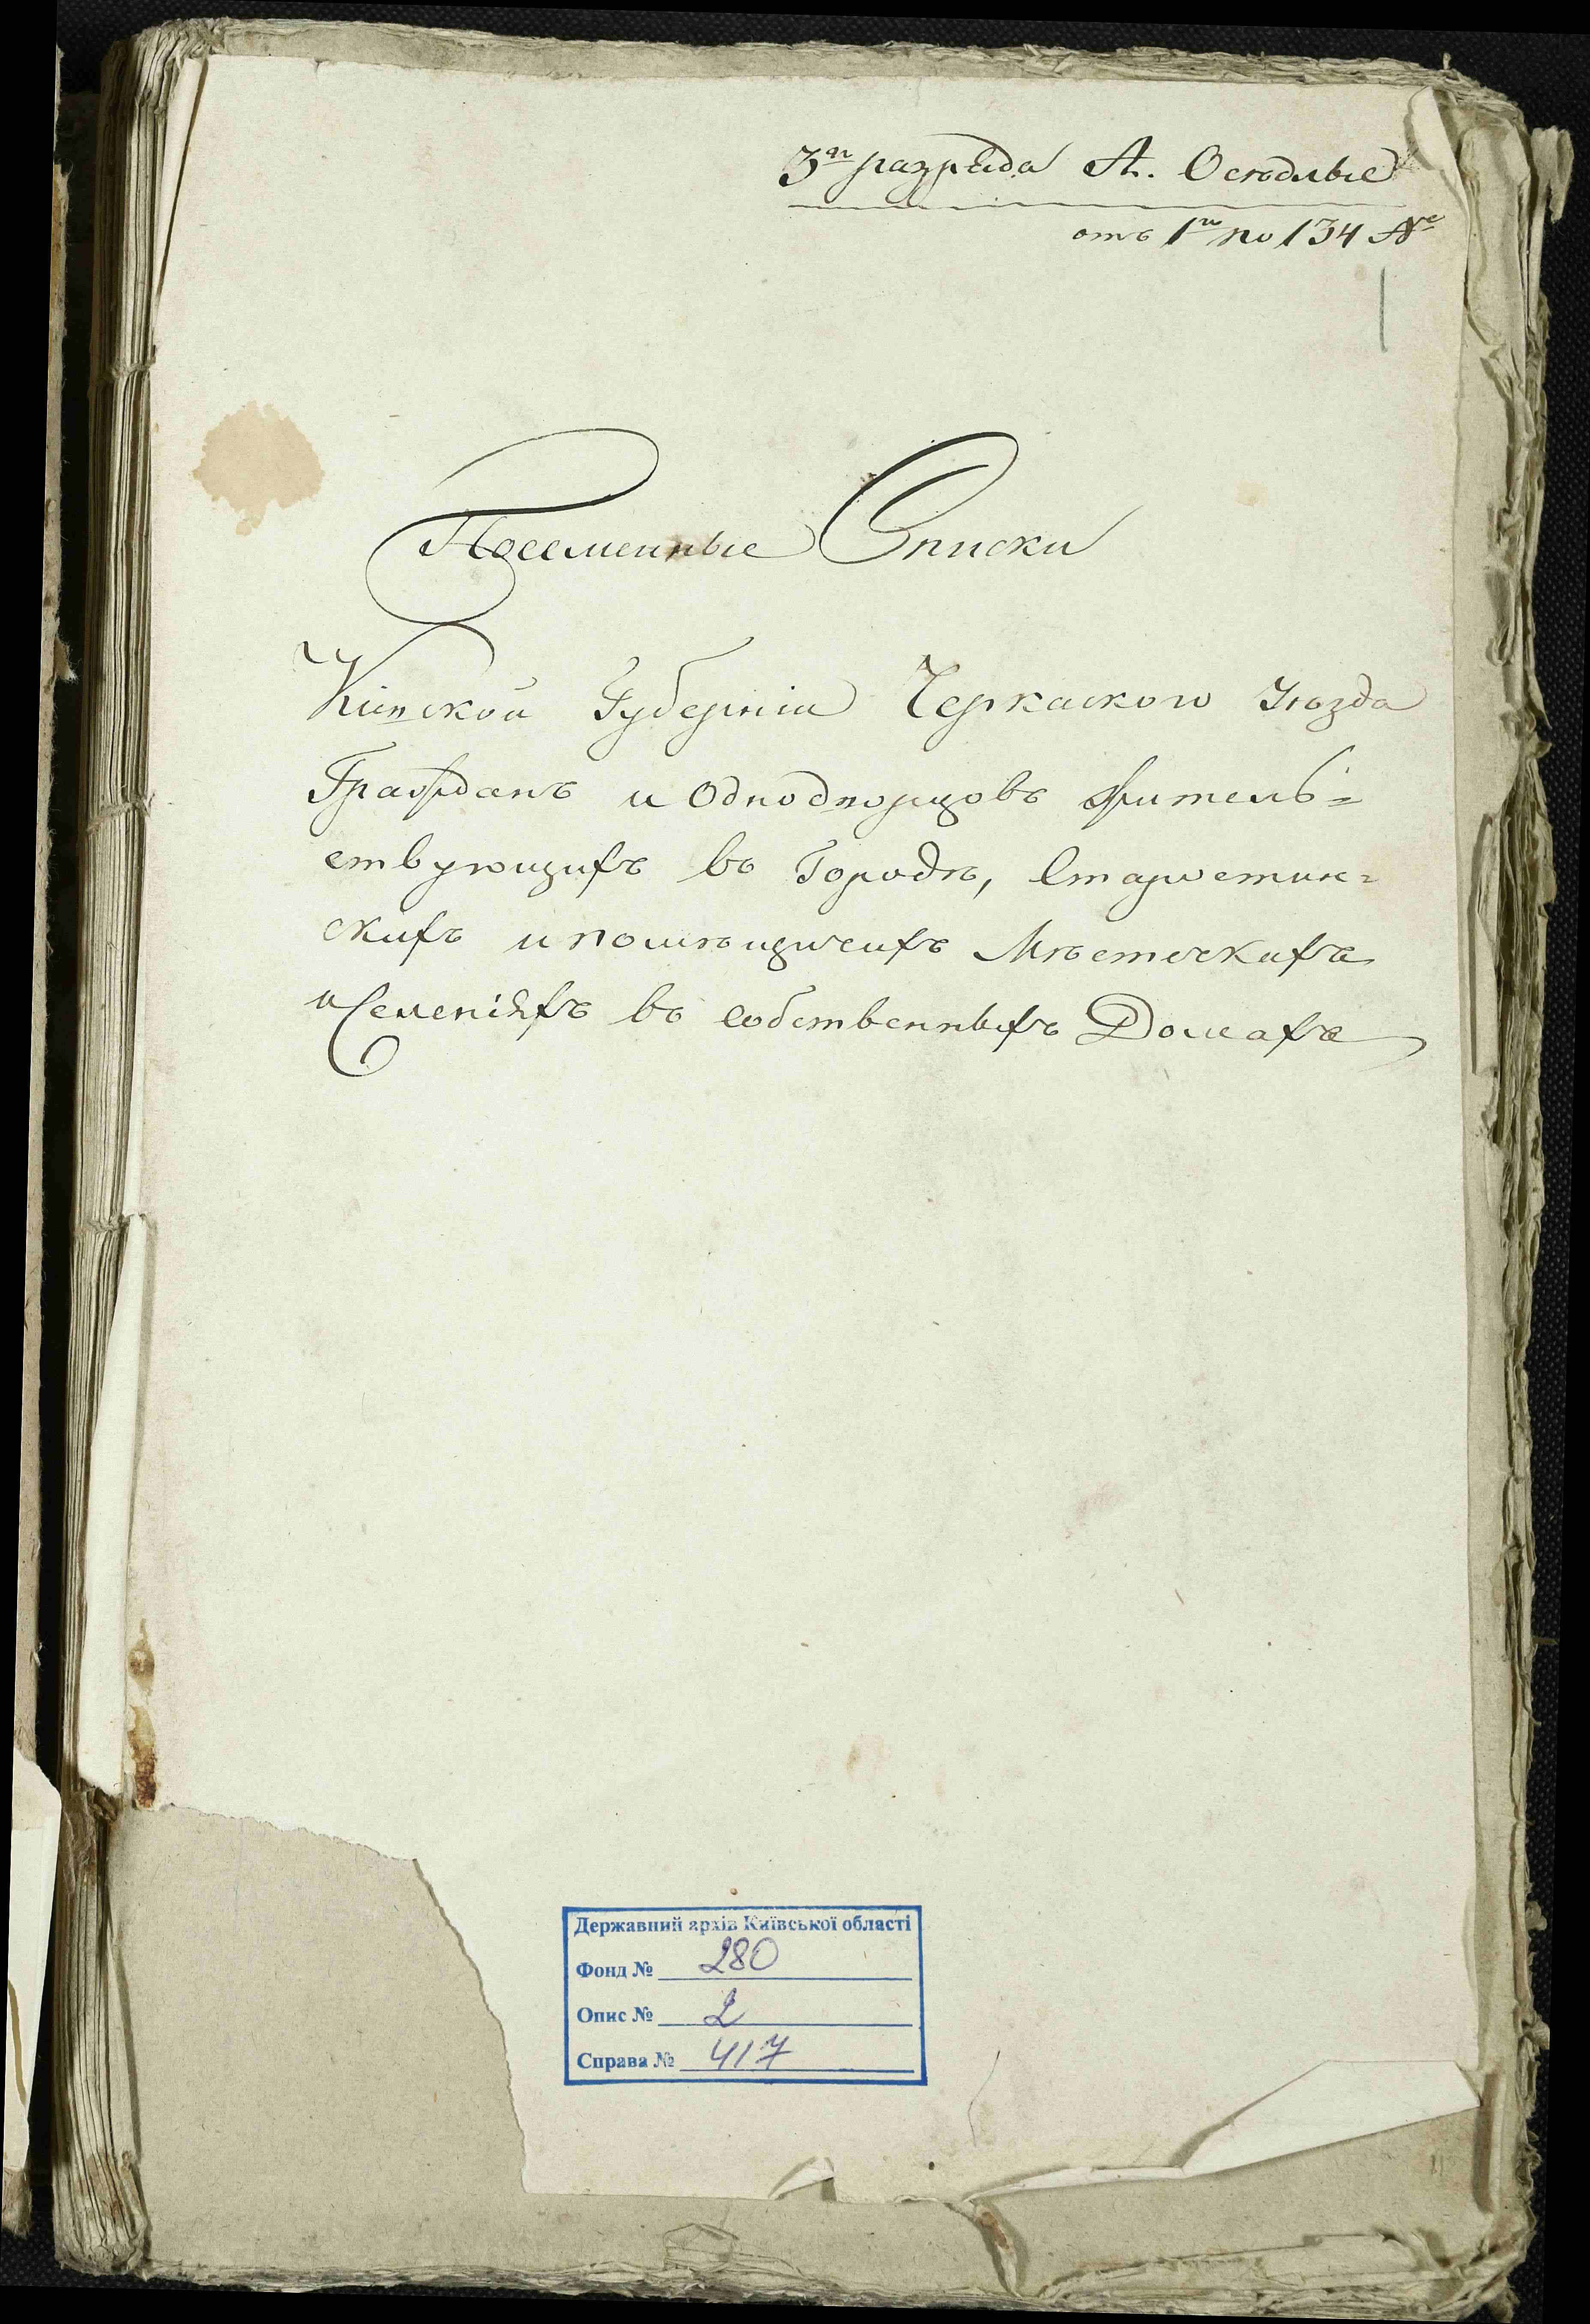 3го разряда А. Осѣдлые
отъ 1го по 134 №
1
Посемейные Списки
Кіевской Губерніи Черкаского Уѣзда
Гражданъ и Однодворцовъ житель=
ствующихъ въ Городѣ, Старостин=
скихъ и помѣщичихъ Мѣстечкахъ
и Селеніяхъ въ собственныхъ Домахъ
Державний архів Київської області
Фонд № 280
Опис № 2
Справа № 417